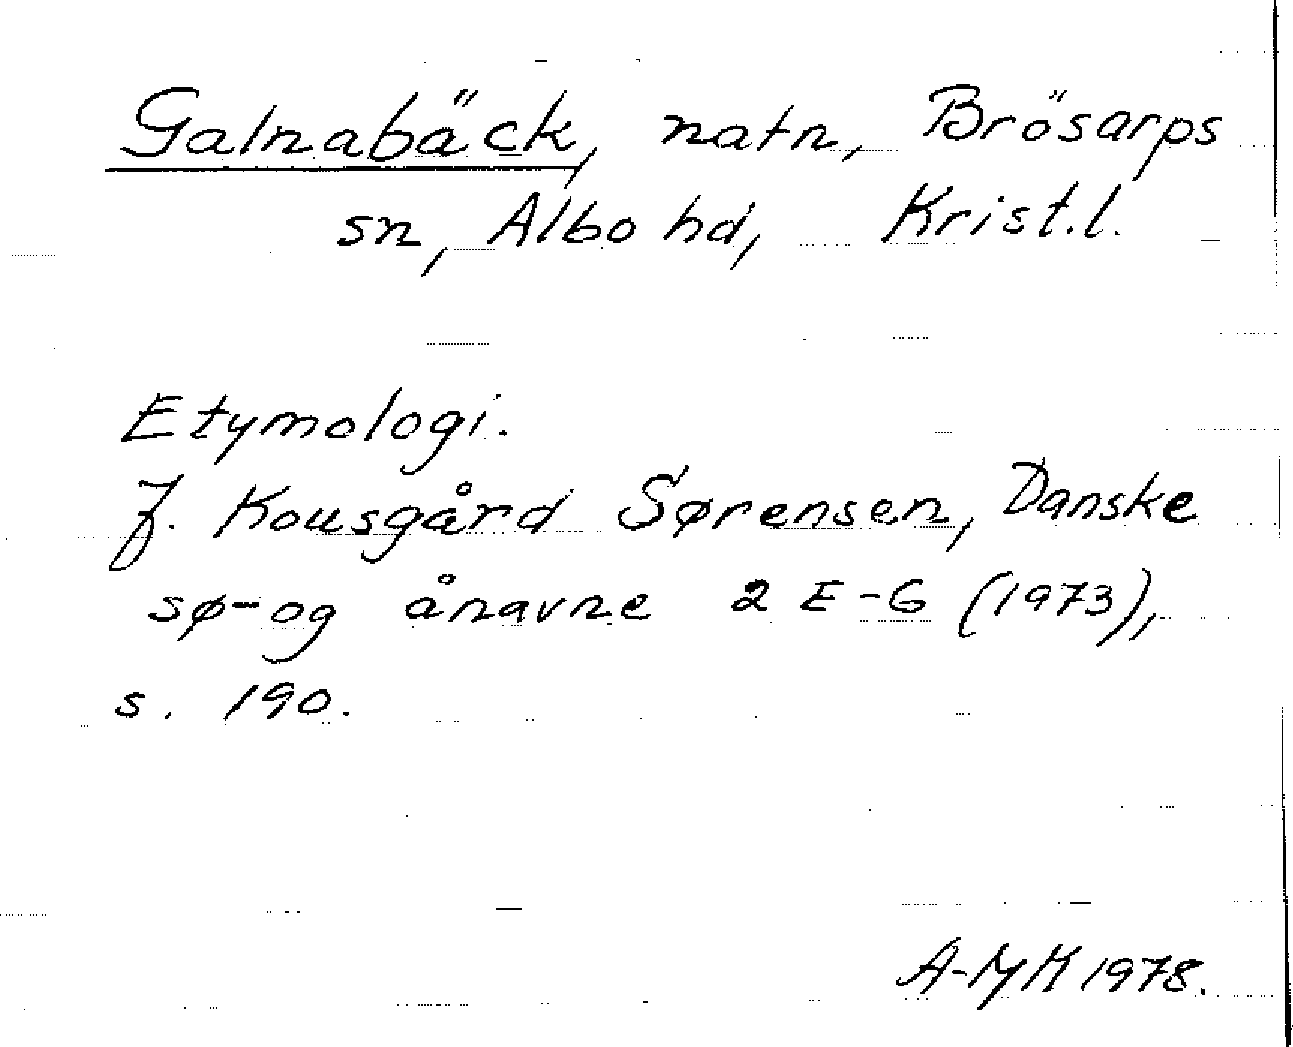 Galnabäck, natn, Brösarps
sn, Albo hd, Krist.l.
Etymologi.
J. Kousgård Sørensen, Danske
sø- og ånavne 2 E-G (1973),
s. 190.
1978.